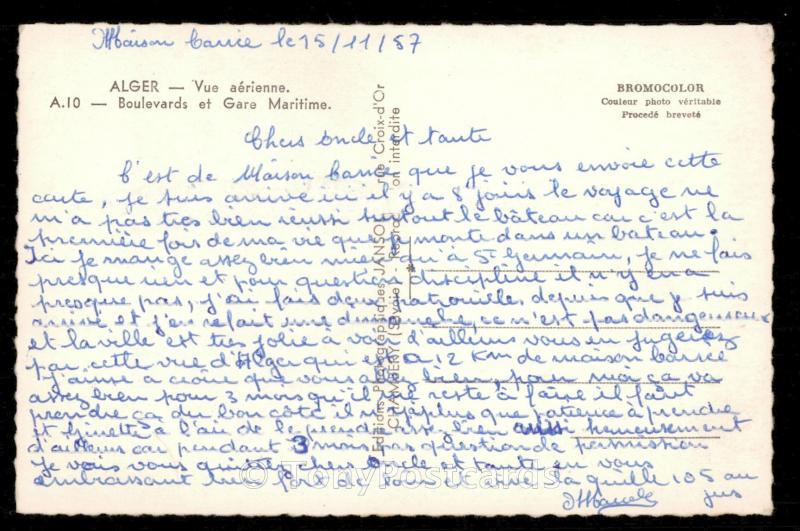 Maison Carrée le 15/11/57
ALGER — Vue aérienne.
A.10 — Boulevards et Gare Maritime.
BROMOCOLOR
Couleur photo véritable
Procedé breveté
Chers oncle et tante
C'est de Maison Carrée que je vous envoie cette
carte, je suis arrivé ici il y a 8 jours le voyage ne
m'a pas très bien réussi surtout le bâteau car c'est la
première fois de ma vie que je monte dans un bateau.
Ici je mange assez bien mieux qu'à St Germain, je ne fais
presque rien et pour question discipline il n'y en a
presque pas, j'ai fais deux patrouilles depuis que je suis
arrivé et j'en refait une dimanche, ce n'est pas dangereux
et la ville est très jolie à voir d'ailleurs vous en jugerez
par cette vue d'Alger qui est a 12 Km de maison carrée
j'aime a croire que vous allez bien, pour moi ça va
assez bien pour 3 mois qu'il me reste à faire il faut
prendre ça du bon côté il n'y a plus que patience à prendre
et Ginette à l'air de le prendre assez bien aussi heureusement
d'ailleurs car pendant 3 mois pas question de permission
Je vais vous quitter chers Oncle et tante en vous
embrassant la quille 105 au
jus
Marcel
Editions Photographiques JANSOL, rue Croix-d'Or
CHAMBERY (Savoie) - Reproduction interdite
© TonyPostcards